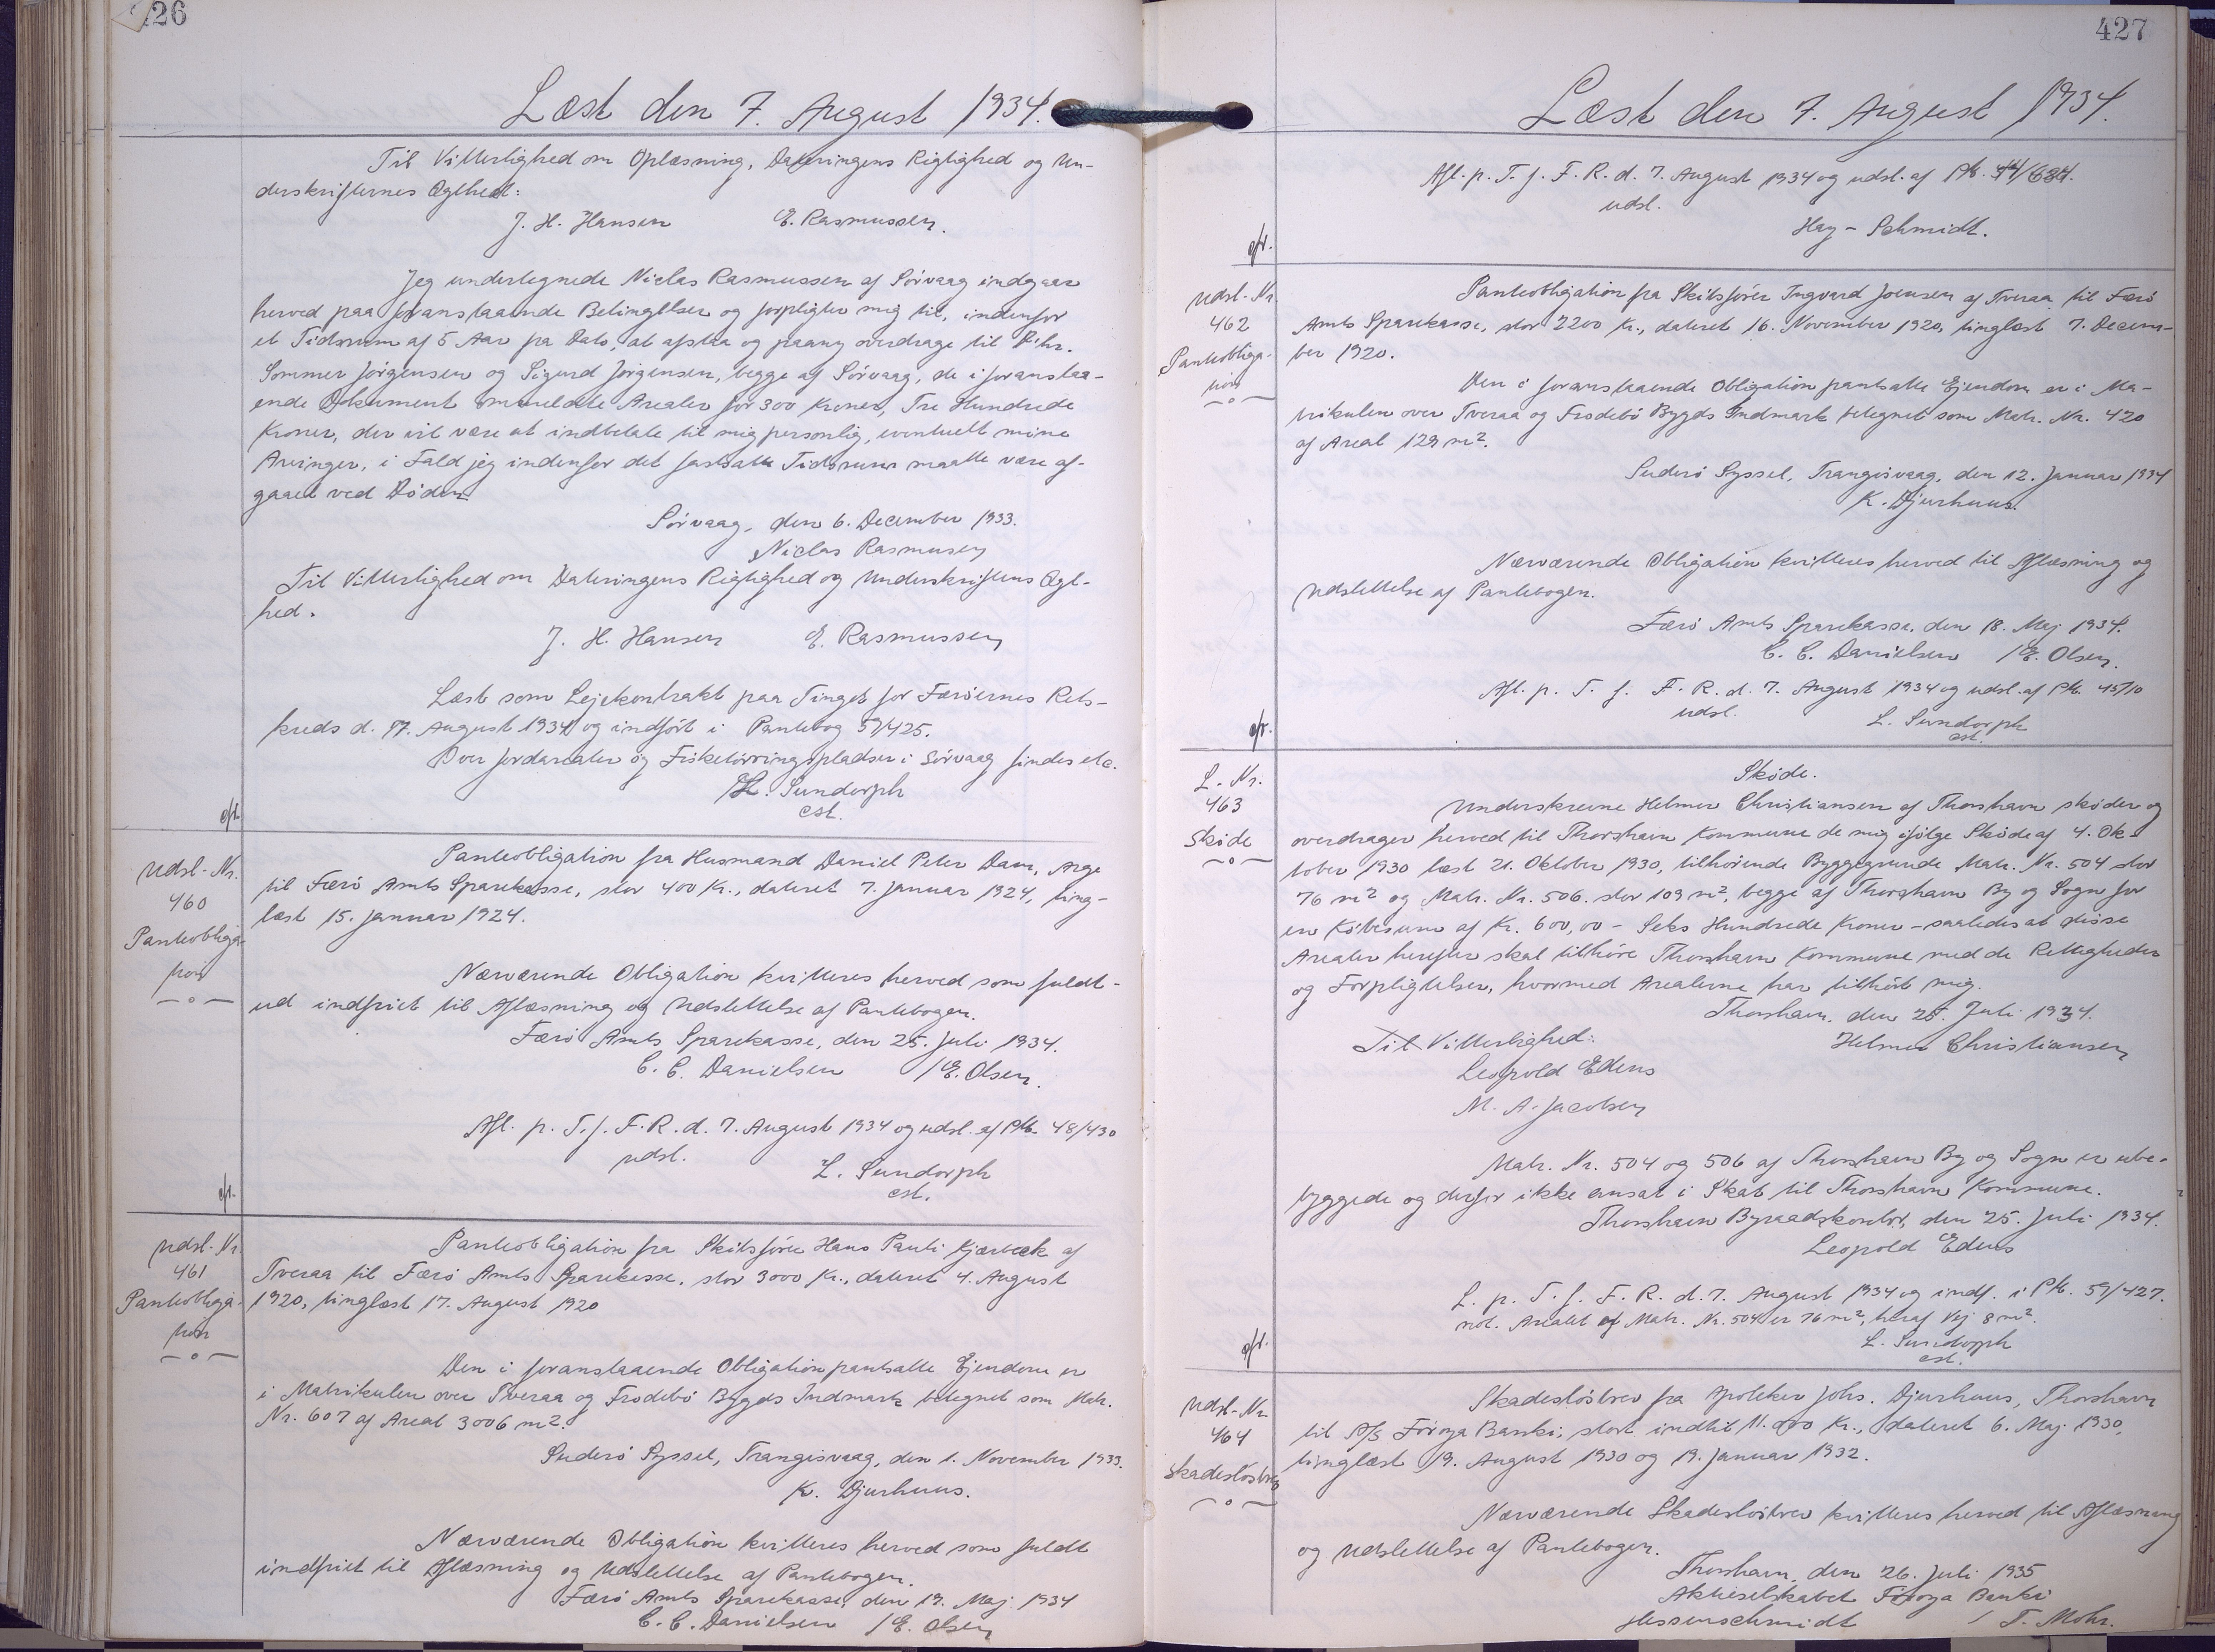 426
Læst den 7. August 1934.
Til Vitterlighed om Oplæsning, Dateringens Rigtighed og Un-
derskrifternes Ægthed:
J. H. Hansen E. Rasmussen.
Jeg undertegnede Niclas Rasmussen af Sörvaag indgaar
herved paa foranstaaende Betingelser og forpligter mig til, indenfor
et Tidsrum af 5 Aar fra Dato, at afstaa og paany overdrage til
Sommer Jörgensen og Sigurd Jörgensen, begge af Sörvaag, de i foranstaa-
ende Dokument ommeldte Arealer for 300 Kroner, Tre Hundrede
Kroner, der vil være at indbetale til mig personlig, eventuelt mine
Arvinger, i Fald jeg indenfor det fastsatte Tidsrum maatte være af-
gaaet ved Döden
Sörvaag, den 6. December 1933.
Niclas Rasmusen
Til Vitterlighed om Dateringens Rigtighed og Underskriftens Ægt-
hed.
J. H. Hansen E. Rasmussen
Læst som Lejekontrakt paa Tinget for Færöernes Rets-
kreds d. 7. August 1934 og indfört i Pantebog 59/425.
Over Jordarealer og Fisketörringspladser i Sörvaag findes etc.
L. Sundorph
cst.
cfr.
Udsl. Nr.
460
Pantobliga-
tion
Pantobligation fra Husmand Daniel Peter Dam, Arge
til Færö Amts Sparekasse, stor 400 Kr., dateret 7. Januar 1924, ting-
læst 15. Januar 1924.
Nærværende Obligation kvitteres herved som fuldt-
ud indfriet til Aflæsning og Udslettelse af Pantebogen.
Færö Amts Sparekasse, den 25. Juli 1934.
C. C. Danielsen /E. Olsen.
Afl. p. T. f. F. R. d. 7. August 1934 og udsl. af Ptb. 48/430
udsl.
L. Sundorph
cst.
cfr.
Udsl. Nr.
461
Pantobliga-
tion
Pantobligation fra Skibsförer Hans Pauli Kjærbæk af
Tveraa til Færö Amts Sparekasse, stor 3000 Kr., dateret 4. August
1920, tinglæst 17. August 1920
Den i foranstaaende Obligation pantsatte Ejendom er
i Matrikulen over Tveraa og Frodebö Bygds Indmark betegnet som Matr.
Nr. 607 af Areal 3006 m².
Suderö Syssel, Trangisvaag, den 1. November 1933.
K. Djurhuus.
Nærværende Obligation kvitteres herved som fuldt
indfriet til Aflæsning og Udslettelse af Pantebogen.
Færö Amts Sparekasse, den 19. Maj 1934
C. C. Danielsen /E. Olsen
427
Læst den 7. August 1934.
Afl. p. T. f. F. R. d. 7. August 1934 og udsl. af Ptb. 44/684.
udsl.
Hay-Schmidt.
cfr.
Udsl. Nr.
462
Pantobliga-
tion
Pantobligation fra Skibsförer Ingvard Joensen af Tveraa til Færö
Amts Sparekasse, stor 2200 Kr., dateret 16. November 1920, tinglæst 7. Decem-
ber 1920.
Den i foranstaaende Obligation pantsatte Ejendom er i Ma-
trikulen over Tveraa og Frodebö Bygds Indmark betegnet som Matr. Nr. 420
af Areal 129 m².
Suderö Syssel, Trangisvaag, den 12. Januar 1934
K. Djurhuus.
Nærværende Obligation kvitteres herved til Aflæsning og
Udslettelse af Pantebogen.
Færö Amts Sparekasse, den 18. Maj 1934.
C. C. Danielsen /E. Olsen.
Afl. p. T. f. F. R. d. 7. August 1934 og udsl. af Ptb. 45/10
udsl.
L. Sundorph
cst.
cfr.
L. Nr.
463
Sköde
Sköde.
Underskrevne Helmer Christiansen af Thorshavn sköder og
overdrager herved til Thorshavn Kommune de mig ifölge Sköde af 4. Ok-
tober 1930 læst 21. Oktober 1930, tilhörende Byggegrunde Matr. Nr. 504 stor
76 m² og Matr. Nr. 506. stor 109 m², begge af Thorshavn By og Sogn for
en Köbesum af Kr. 600,00 - Seks Hundrede Kroner - saaledes at disse
Arealer herefter skal tilhöre Thorshavn Kommune med de Rettigheder
og Forpligtelser, hvormed Arealerne har tilhört mig.
Thorshavn, den 25. Juli 1934.
Til Vitterlighed: Helmer Christiansen
Leopold Edens
M. A. Jacobsen
Matr. Nr. 504 og 506 af Thorshavn By og Sogn er ube-
byggede og derfor ikke ansat i Skat til Thorshavn Kommune.
Thorshavn Byraadskontor, den 25. Juli 1934.
Leopold Edens
L. p. T. f. F. R. d. 7. August 1934 og indf. i Ptb. 59/427.
not. Arealet af Matr. Nr. 504 er 76 m², heraf Vej 8 m².
L. Sundorph
cst.
cfr.
Udsl. Nr.
464
Skadeslösbrev
Skadeslösbrev fra Apoteker Johs. Djurhuus, Thorshavn
til A/S Föroya Banki, stort indtil 11.000 Kr., dateret 6. Maj 1930,
tinglæst 19. August 1930 og 19. Januar 1932.
Nærværende Skadeslösbrev kvitteres herved til Aflæsning
og Udslettelse af Pantebogen.
Thorshavn, den 26. Juli 1935
Aktieselskabet Föroya Banki
/ T. Mohr.